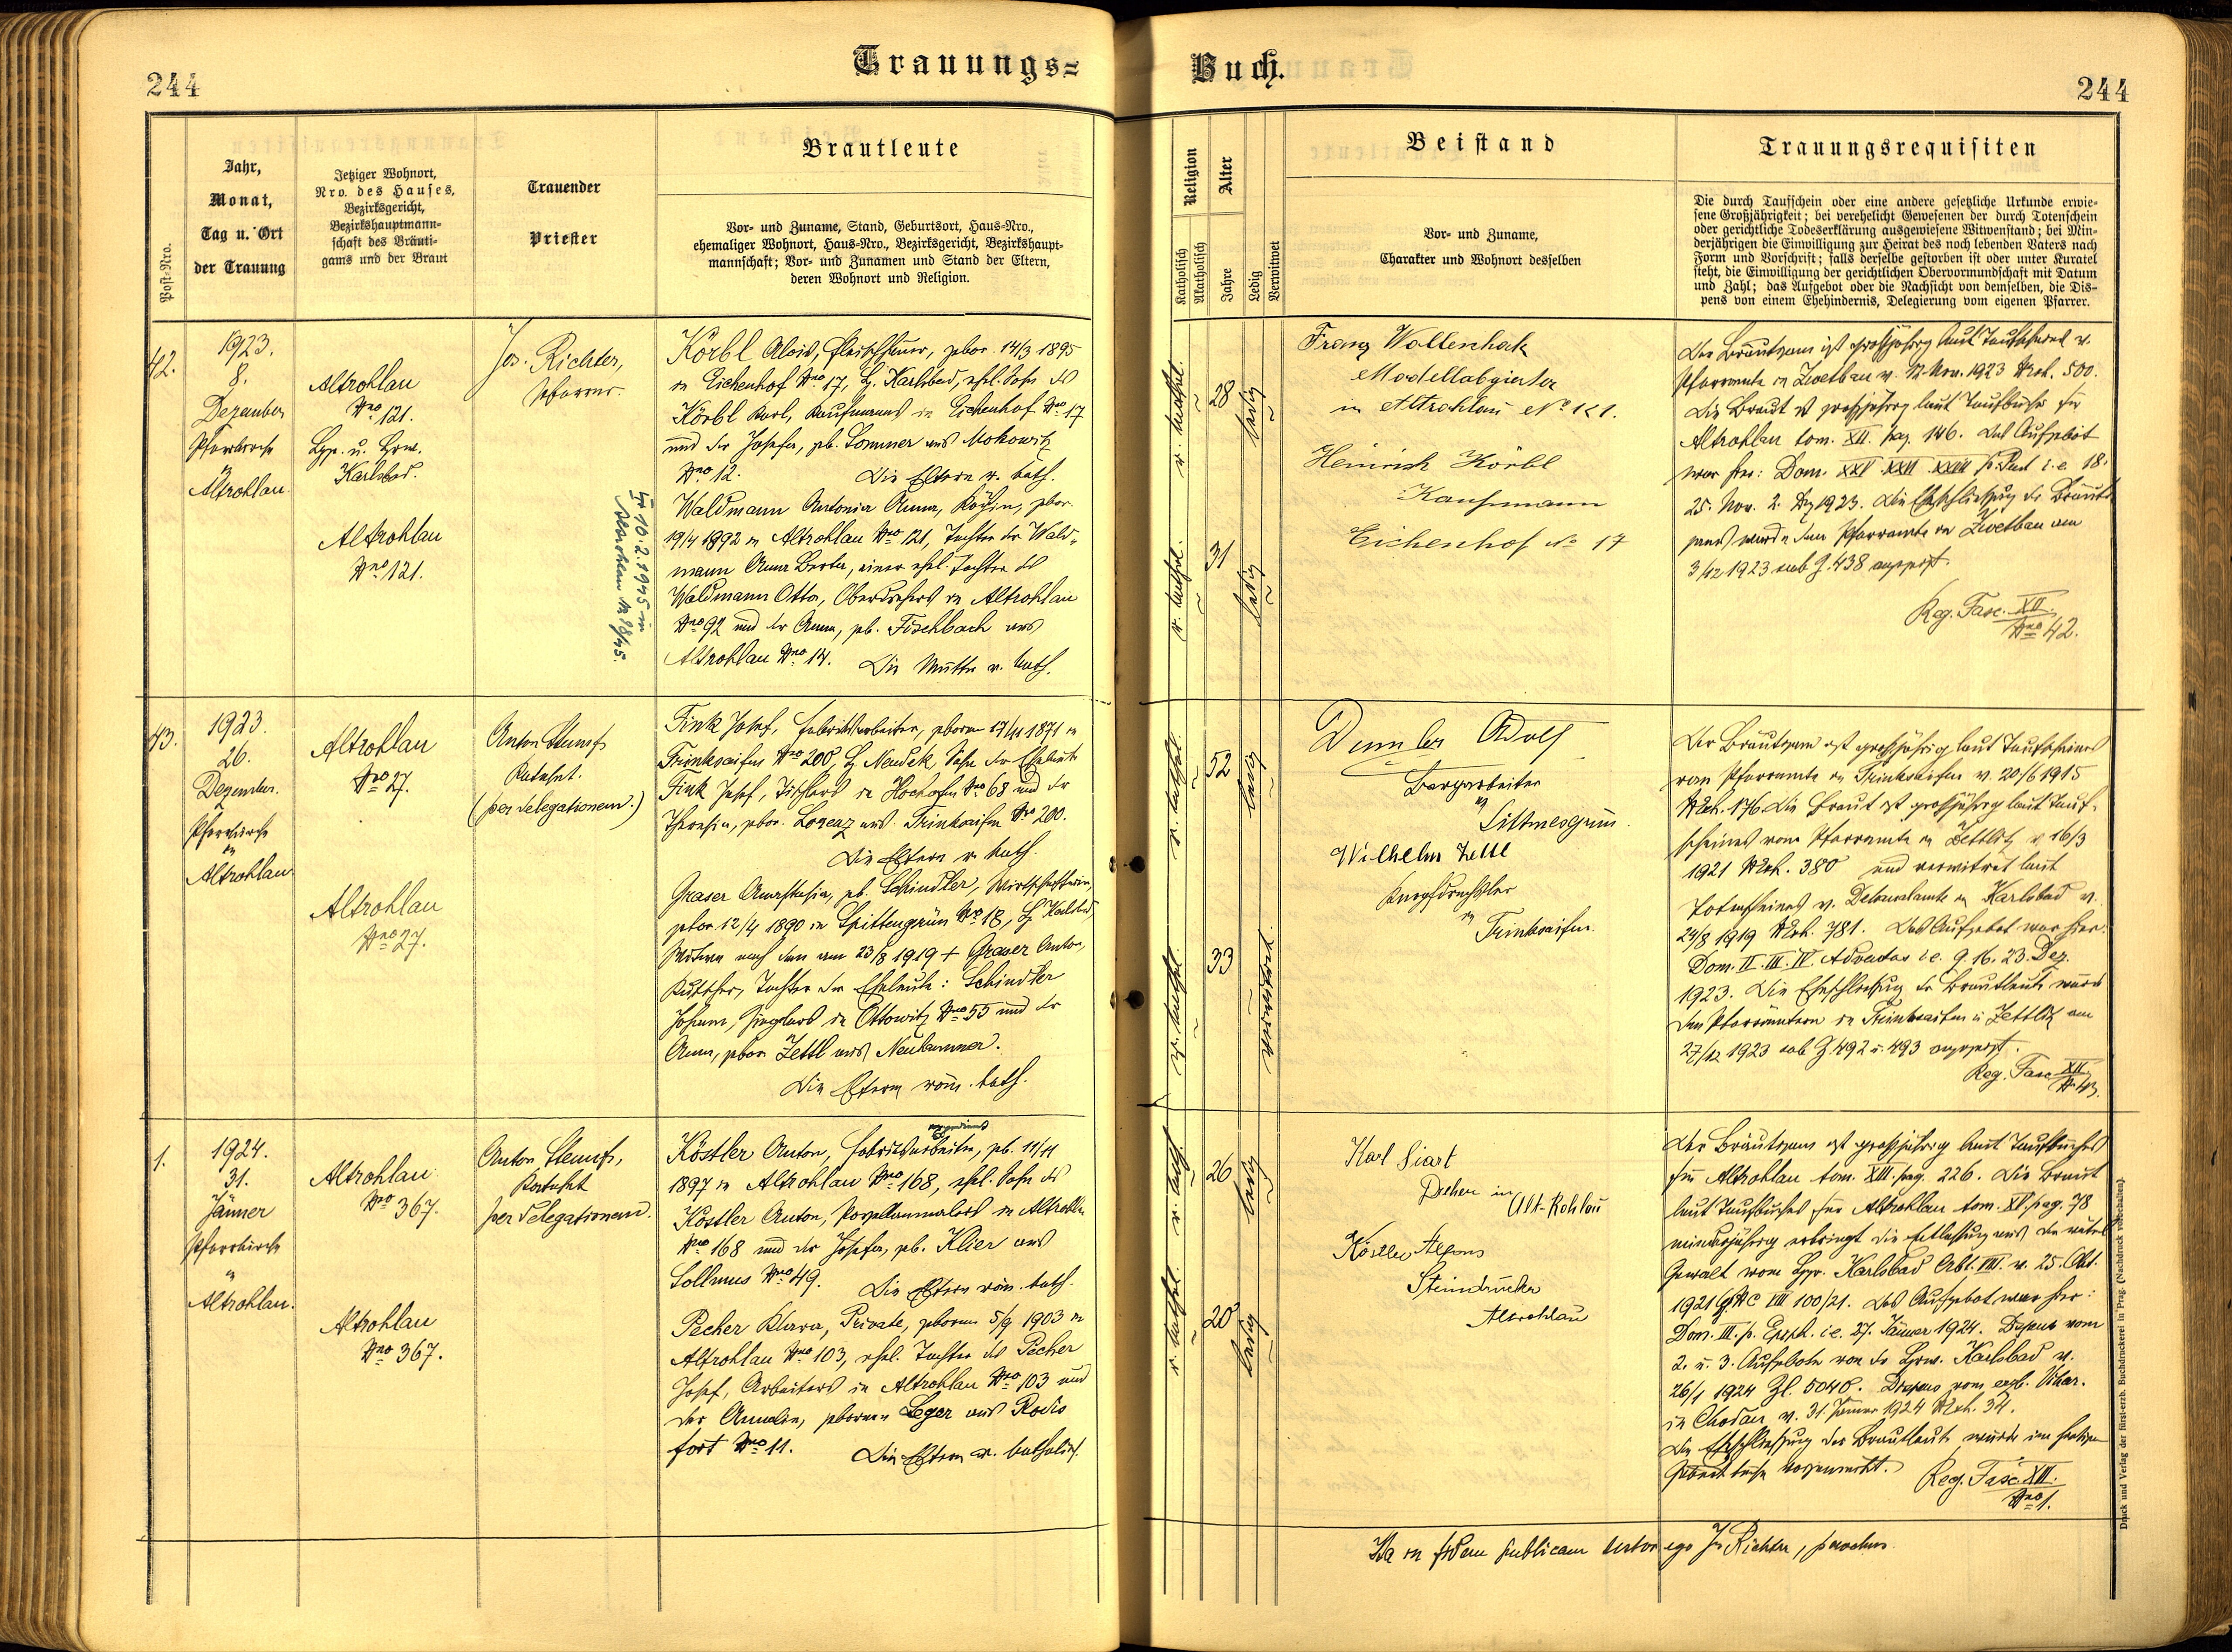 Trauungs=
Buch.
244
244
Post-Nro.
Jahr,
Monat,
Tag u. Ort
der Trauung
Jetziger Wohnort,
Nro. des Hauses,
Bezirksgericht,
Bezirkshauptmann-
schaft des Bräuti-
gams und der Braut
Trauender
Priester
Brautleute
Vor- und Zuname, Stand, Geburtsort, Haus-Nro.,
ehemaliger Wohnort, Haus-Nro., Bezirksgericht, Bezirkshaupt-
mannschaft; Vor- und Zunamen und Stand der Eltern,
deren Wohnort und Religion.
Religion
Katholisch
Akatholisch
Alter
Jahre
Ledig
Verwitwet
Beistand
Vor- und Zuname,
Charakter und Wohnort desselben
Trauungsrequisiten
Die durch Taufschein oder eine andere gesetzliche Urkunde erwie-
sene Großjährigkeit; bei verehelicht Gewesenen der durch Totenschein
oder gerichtliche Todeserklärung ausgewiesene Witwenstand; bei Min-
derjährigen die Einwilligung zur Heirat des noch lebenden Vaters nach
Form und Vorschrift; falls derselbe gestorben ist oder unter Kuratel
steht, die Einwilligung der gerichtlichen Obervormundschaft mit Datum
und Zahl; das Aufgebot oder die Nachsicht von demselben, die Dis-
pens von einem Ehehindernis, Delegierung vom eigenen Pfarrer.
42.
1923.
8.
Dezember
Pfarrkirche
in
Altrohlau.
Altrohlau
Nro 121.
Bzg. u. Bzw.
Karlsbad.
Altrohlau
Nro 121.
Jos. Richter,
Pfarrer.
Körbl Alois, Fleischhauer, gebor. 14/3 1895
in Eichenhof Nro 17, Bz. Karlsbad, ehel. Sohn des
Körbl Karl, Kaufmanns in Eichenhof Nro 17
und der Josefa, gb. Lommer aus Mokowitz
Nro 12. Die Eltern r. kath.
Waldmann Antonia Anna, Köchin, gebor.
19/4 1892 in Altrohlau Nro 121, Tochter der Wald-
mann Anna Berta, einer ehel. Tochter des
Waldmann Otto, Oberdrehers in Altrohlau
Nro 92 und der Anna, gb. Fischbach aus
Altrohlau Nro 14. Die Mutter r. kath.
10.2.1945 in
r. kathol.
28
ledig
r. kathol.
31
ledig
Franz Wollenhak
Modellabgießer
in Altrohlau No 121.
Heinrich Körbl
Kaufmann
Eichenhof No 17
Der Bräutigam ist großjährig laut Taufschein v.
Pfarramte in Zwetbau v. 12. Nov. 1923 NExh. 500.
Die Braut ist großjährig laut Taufbuch für
Altrohlau tom. XII. pag. 146. Das Aufgebot
war hier: Dom. XXV. XXVI. XXVII p. Pent i. e. 18.
25. Nov. 2. Dz 1923. Die Eheschließung des Bräuti-
gams wurde dem Pfarramte in Zwetbau am
3/12 1923 sub Z. 438 angezeigt.
Reg. Fasc. XII.
Nro 42.
43.
1923.
26.
Dezember.
Pfarrkirche
in
Altrohlau.
Altrohlau
Nro 27.
Altrohlau
Nro 27.
Anton Stumpf,
Katechet.
(per delegationem.)
Fink Josef, Fabriksarbeiter, geboren 17/11 1871 in
Trinksaifen Nro 200, Bz Neudek, Sohn der Eheleute
Fink Josef, Tischlers in Hochofen Nro 68 und der
Theresia, gebor. Lorenz aus Trinksaifen Nro 200.
Die Eltern r. kath.
Graser Anastasia, gb. Schindler, Wirtschafterin,
gebor. 12/4 1890 in Spittengrün Nro 18, Bz Karlsbad,
Witwe nach dem am 23/8 1919 + Graser Anton,
Kutscher, Tochter der Eheleute: Schindler
Johann, Zieglers in Ottowitz Nro 55 und der
Anna, gebor. Zettl aus Neubrunner.
Die Eltern röm. kath.
r. kathol.
52
ledig
r. kathol.
33
verwitwet.
Dumler Adolf
Bergarbeiter
in
Littmesgrün.
Wilhelm Zettl
in
Trinksaifen.
Der Bräutigam ist großjährig laut Taufscheines
vom Pfarramte in Trinksaifen v. 20/6 1915
NExh. 176. Die Braut ist großjährig laut Tauf-
scheines vom Pfarramte in Zettlitz v. 16/3
1921 NExh. 380 und verwitwet laut
Totenscheines v. Dekanalamte in Karlsbad v.
24/8 1919 NExh. 781. Das Aufgebot war hier:
Dom. II. III. IV. Adventus i. e. 9. 16. 23. Dez.
1923. Die Eheschließung der Brautleute wurde
den Pfarrämtern in Trinksaifen u. Zettlitz am
27/12 1923 sub Z. 492 u. 493 angezeigt.
Reg. Fasc XII
Nro 43.
1.
1924.
31.
Jänner
Pfarrkirche
in
Altrohlau.
Altrohlau
Nro 367.
Altrohlau
Nro 367.
Anton Stumpf,
Katechet
per delegationem.
Köstler Anton, Fabriksarbeiter, gb. 11/11
1897 in Altrohlau Nro 168, ehel. Sohn des
Köstler Anton, Porzellanmalers in Altrohlau
Nro 168 und der Josefa, gb. Klier aus
Sollmus Nro 49. Die Eltern röm. kath.
Pecher Klara, Private, geboren 5/9 1903 in
Altrohlau Nro 103, ehel. Tochter des Pecher
Josef, Arbeiters in Altrohlau Nro 103 und
der Amalia, geborenen Leger aus Rodis
fort Nro 11. Die Eltern r. katholisch
r. kath.
26
ledig
r. kathol.
20
ledig
Karl Siart
Dreher in
Alt-Rohlau
Köstler Alfons
Steindrucker
Altrohlau
Der Bräutigam ist großjährig laut Taufbuches
für Altrohlau tom. XIII. pag. 226. Die Braut
laut Taufbuches für Altrohlau tom. XV. pag. 78
minderjährig erbringt die Entlassung aus der väterl.
Gewalt vom Bzg. Karlsbad Abt. VIII. v. 25. Okt.
1921 G. Nc VIII 100/21. Das Aufgebot war hier:
Dom. III. p. Epiph. i. e. 27. Jänner 1924. Dispens vom
2. u. 3. Aufgebote von der Bzw. Karlsbad v.
26/1 1924 Zl. 5040. Dispens vom erzb. Vikar.
in Chodau v. 31. Jänner 1924 NExh. 34.
Die Eheschließung der Brautleute wurde im hiesigen
vorgemerkt.
Reg. Fasc. XII.
Nro 1.
Ita in fidem publicam testor ego Jos Richter, parochus.
Druck und Verlag der fürst-erzb. Buchdruckerei in Prag. (Nachdruck vorbehalten).